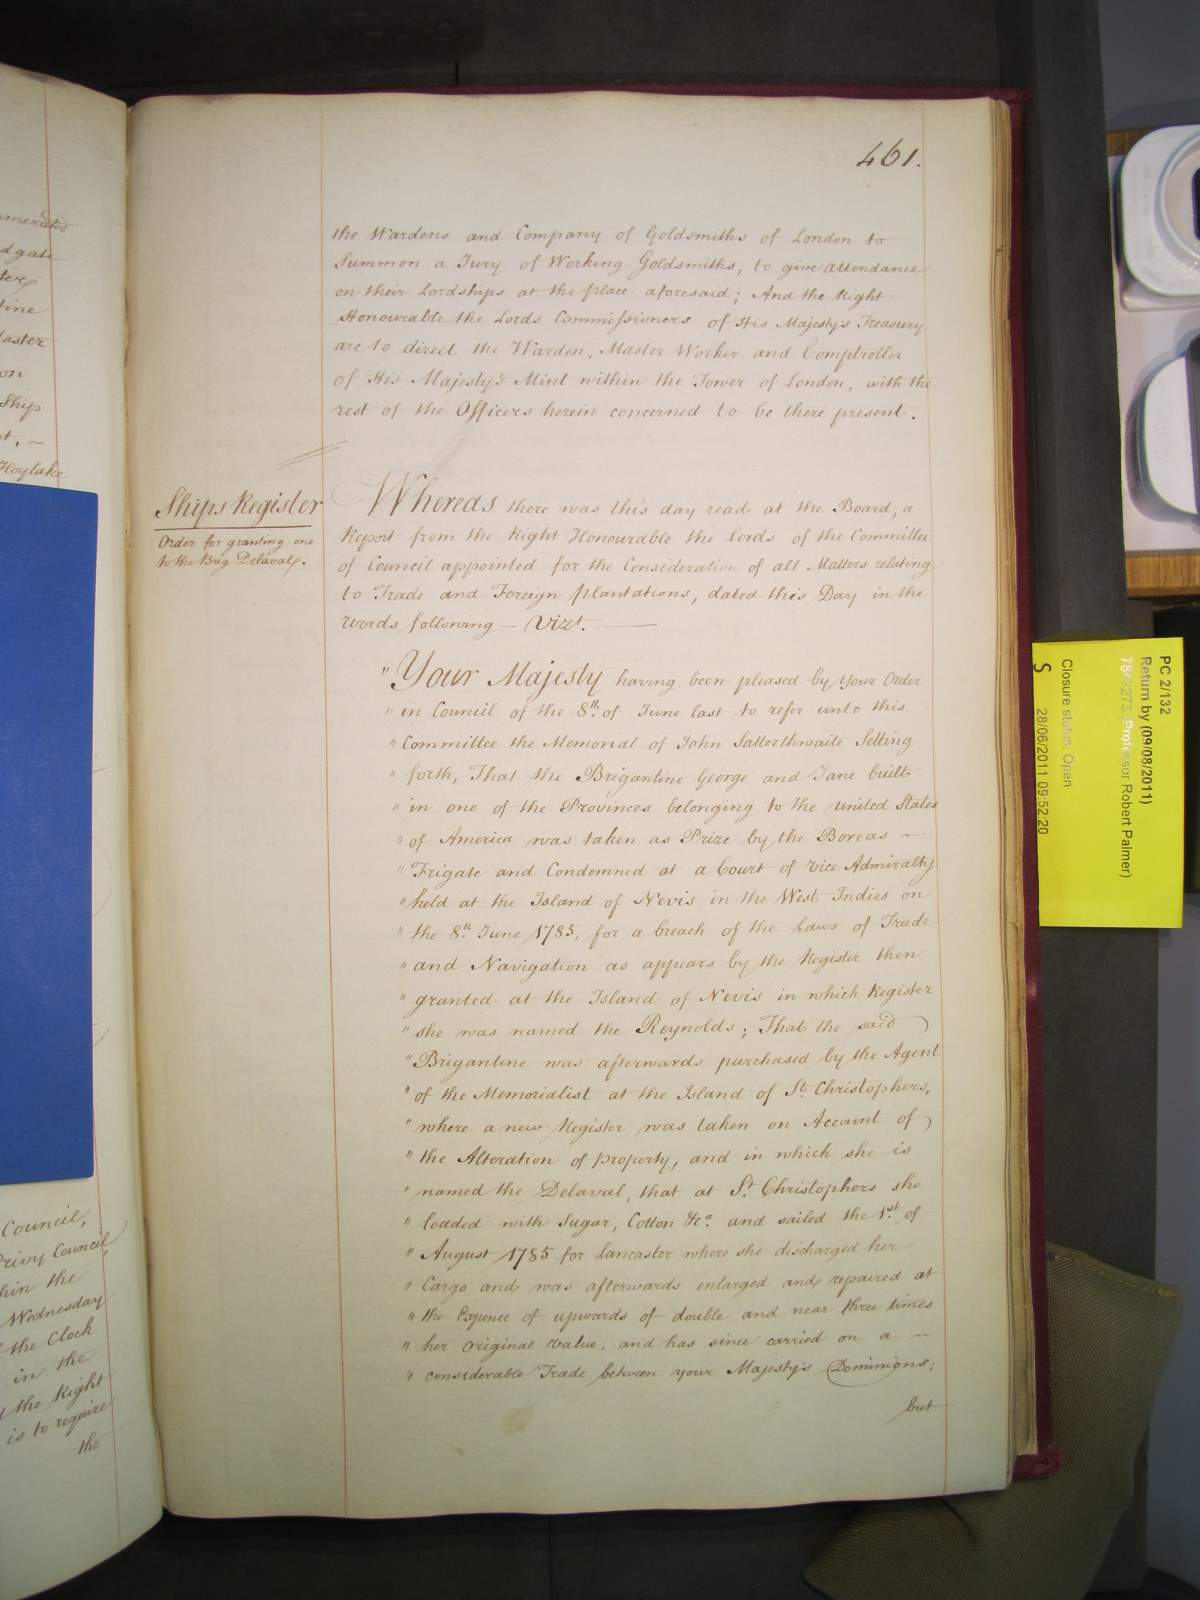 merated
dgate
ter
tine
laster
on
Ship
Hoylake
Council,
Privy Council,
hin the
Wednesday
the Clock
in the
the Right
is to require
the
461.
the Wardens and Company of Goldsmiths of London to
Summon a Jury of Working Goldsmiths, to give attendance
on their Lordships at the place aforesaid; And the Right
Honourable the Lords Commissioners of His Majesty's Treasury
are to direct the Warden, Master Worker and Comptroller
of His Majesty's Mint within the Tower of London, with the
rest of the Officers herein concerned to be there present.
Ships Register
Order for granting one
to the Brig Delaval.
Whereas there was this day read at the Board, a
Report from the Right Honourable the Lords of the Committee
of Council appointed for the Consideration of all Matters relating
to Trade and Foreign Plantations, dated this Day in the
words following — Vizt. —
" Your Majesty having been pleased by Your Order
" in Council of the 8th. of June last to refer unto this
" Committee the Memorial of John Satterthwaite Setting
" forth, That the Brigantine George and Jane built
" in one of the Provinces belonging to the united States
" of America was taken as Prize by the Boreas ~
" Frigate and Condemned at a Court of Vice Admiralty
" held at the Island of Nevis in the West Indies on
" the 8th. June 1785, for a breach of the Laws of Trade
" and Navigation as appears by the Register then
" granted at the Island of Nevis in which Register
" she was named the Reynolds; That the said
" Brigantine was afterwards purchased by the Agent
" of the Memorialist at the Island of St. Christophers,
" where a new Register was taken on Account of
" the Alteration of property, and in which she is
" named the Delaval, that at St. Christophers she
" loaded with Sugar, Cotton &ca. and sailed the 1st. of
" August 1785 for Lancaster where she discharged her
" Cargo and was afterwards enlarged and repaired at
" the Expence of upwards of double and near three times
" her original value, and has since carried on a ~
" considerable Trade between your Majesty's Dominions;
but
PC 2/132
Return by (09/08/2011)
Professor Robert Palmer)
Closure status: Open
S 28/06/2011 09:52:20